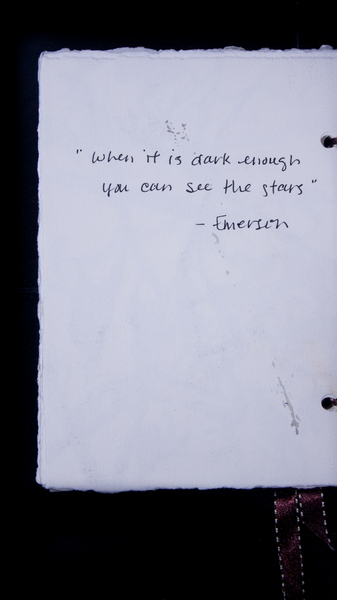 "when it is dark enough
you can see the stars"
- Emerson